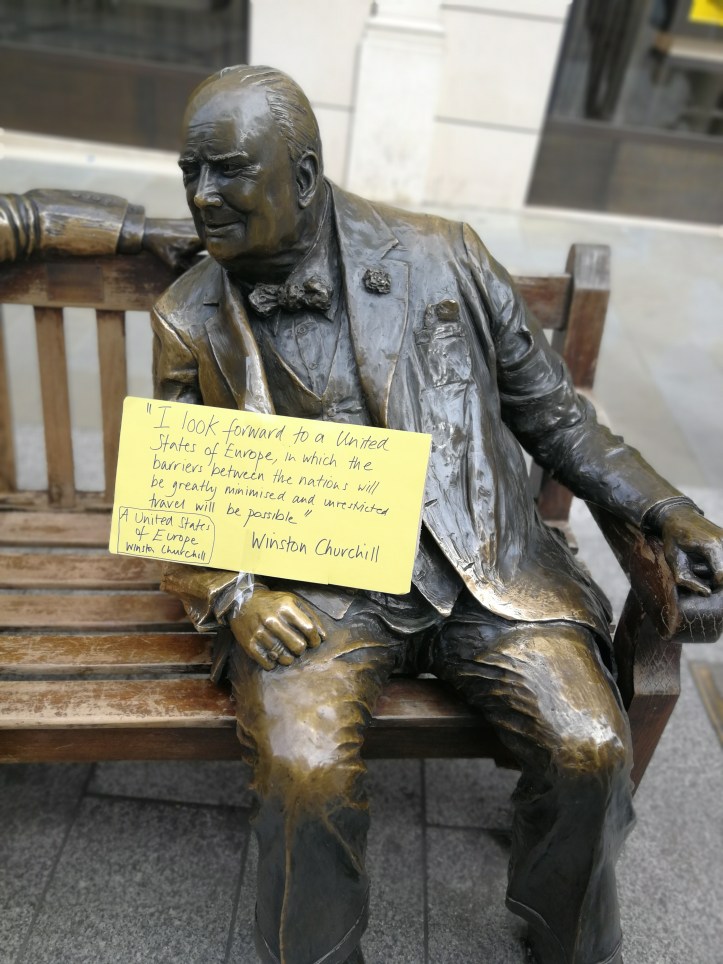 "I look forward to a United
States of Europe, in which the
barriers between the nations will
be greatly minimised and unrestricted
travel will be possible"
Winston Churchill
A United States
of Europe
Winston Churchill